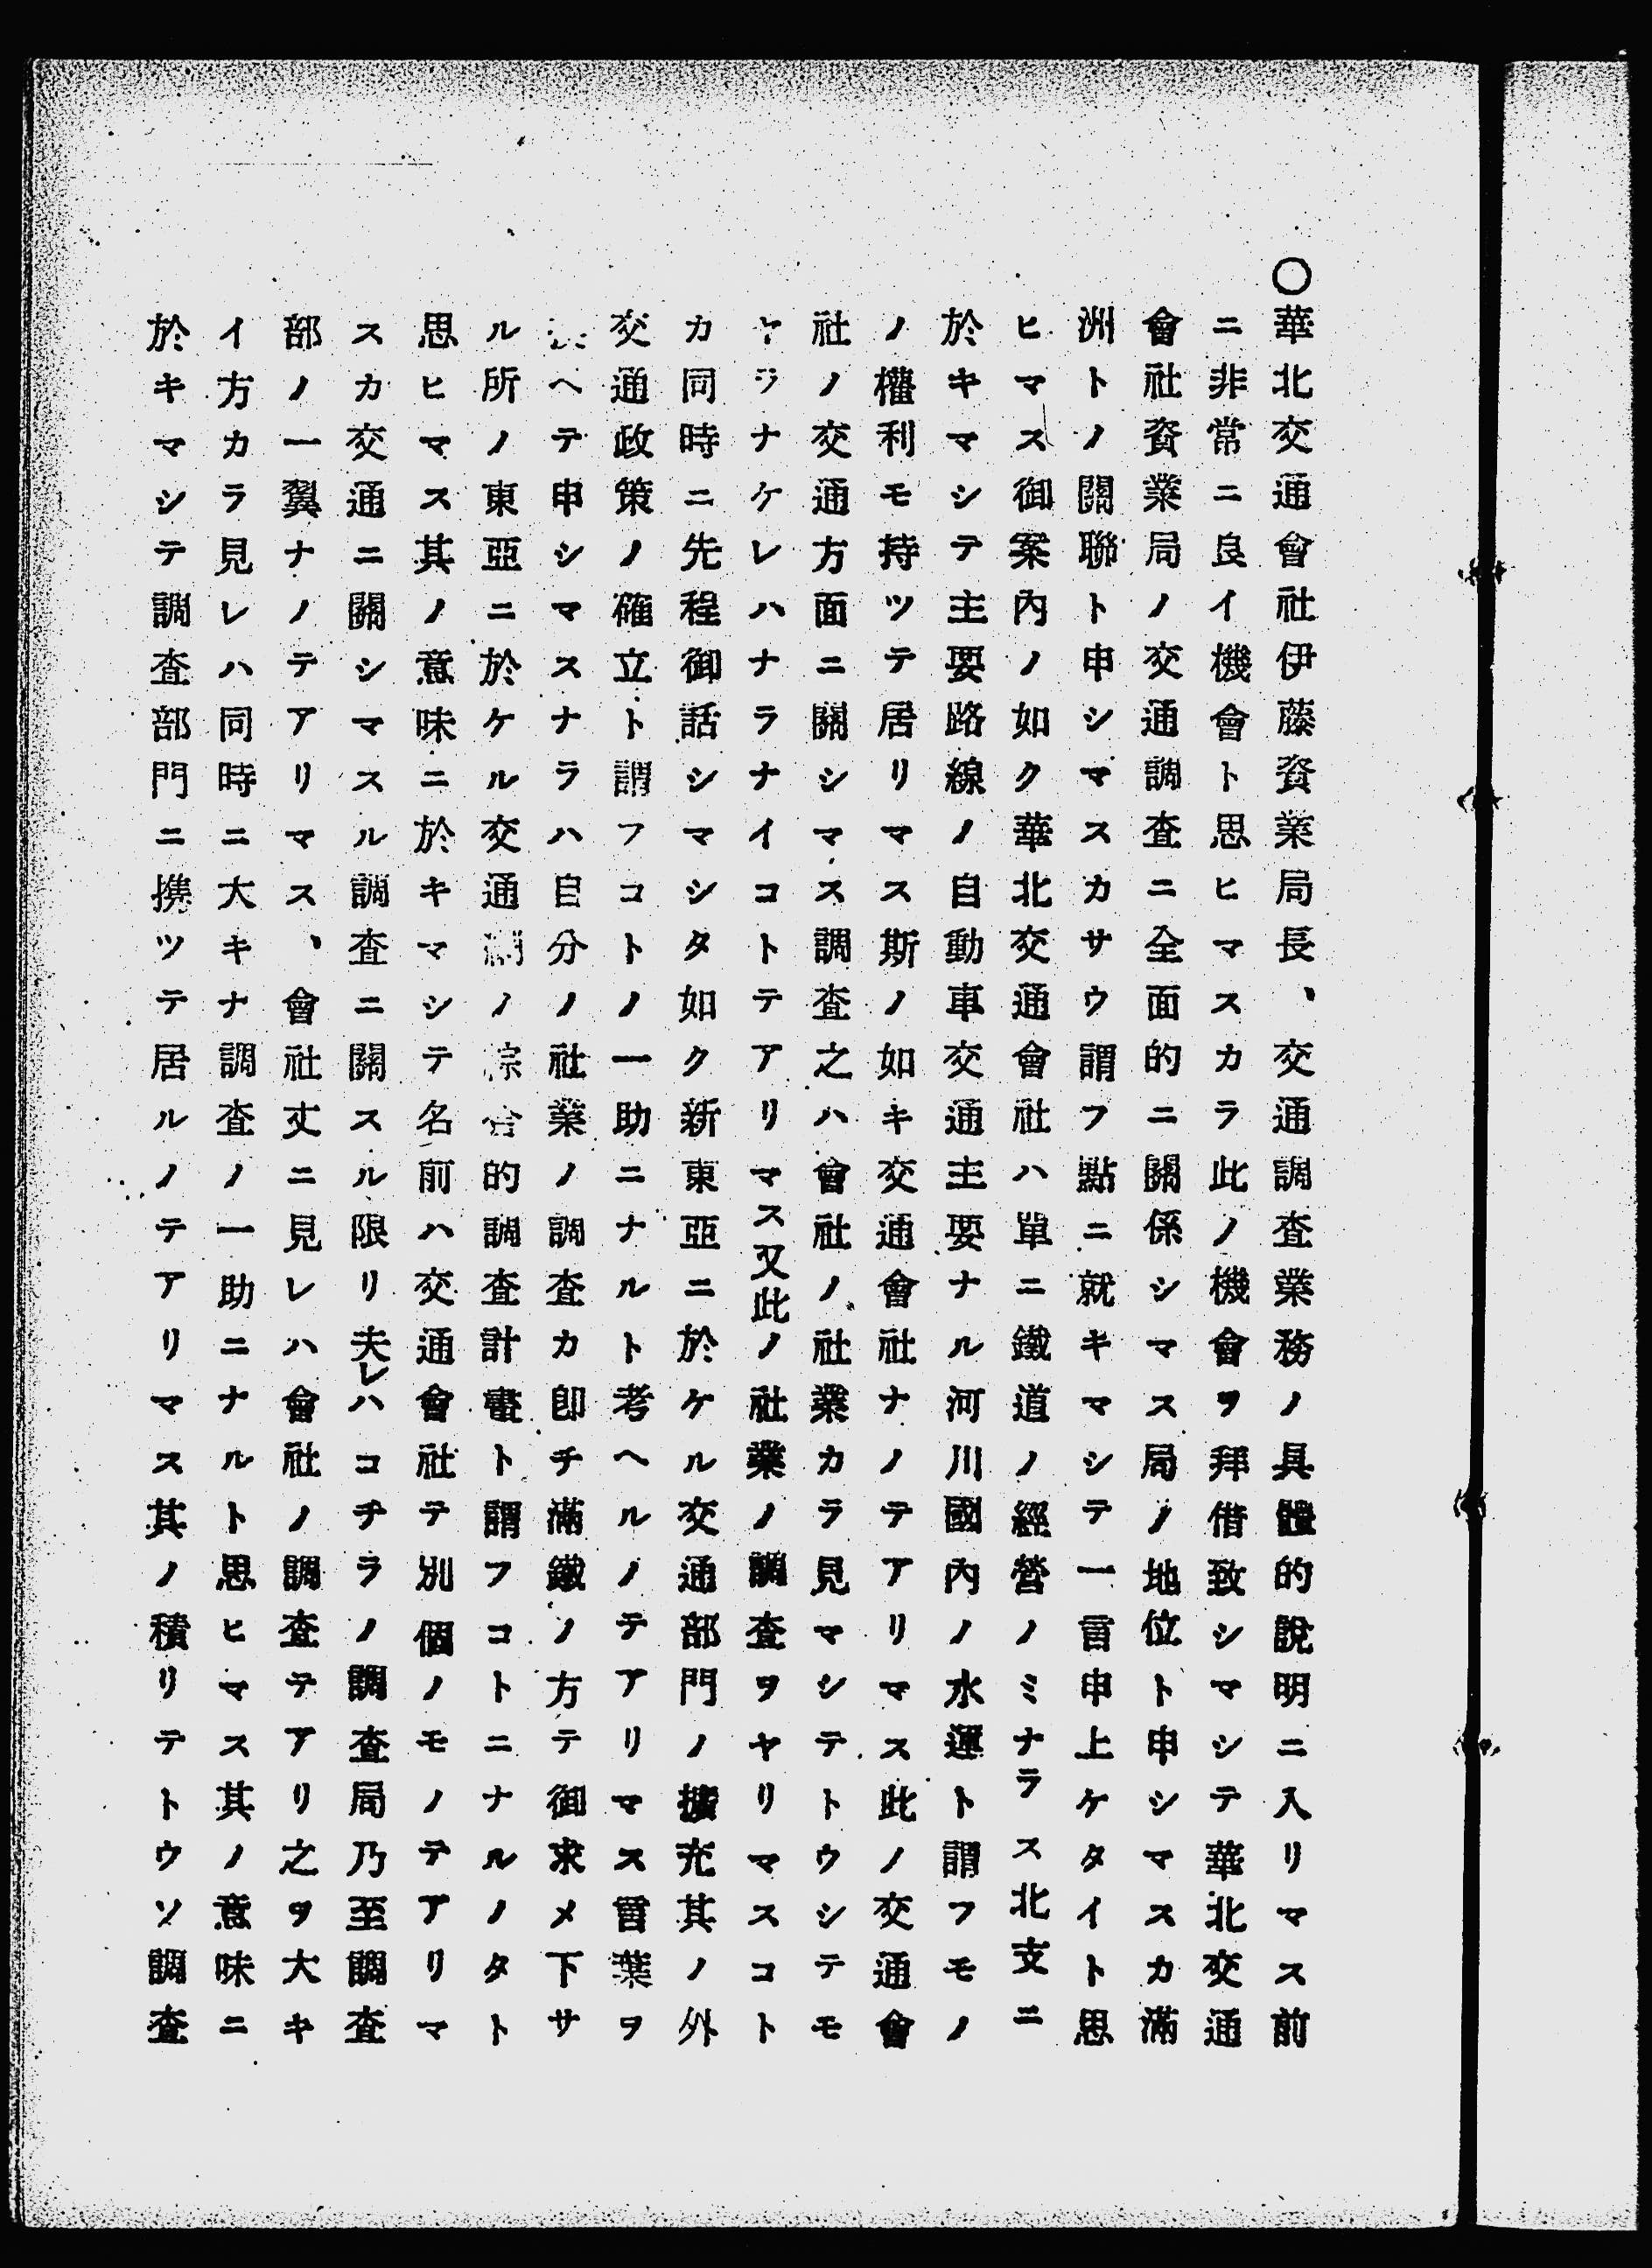 〇華北交通會社伊藤資業局長、交通調査業務ノ具體的說明ニ入リマス前
ニ非常ニ良イ機會ト思ヒマスカラ此ノ機會ヲ拜借致シマシテ華北交通
會社資業局ノ交通調査ニ全面的ニ關係シマス局ノ地位ト申シマスカ滿
洲トノ關聯ト申シマスカサウ謂フ點ニ就キマシテ一言申上ケタイト思
ヒマス御案內ノ如ク華北交通會社ハ單ニ鐵道ノ經營ノミナラス北支ニ
於キマシテ主要路線ノ自動車交通主要ナル河川國內ノ水運ト謂フモノ
ノ權利モ持ツテ居リマス斯ノ如キ交通會社ナノテアリマス此ノ交通會
社ノ交通方面ニ關シマス調査之ハ會社ノ社業カラ見マシテトウシテモ
ヤラナケレハナラナイコトテアリマス又此ノ社業ノ調査ヲヤリマスコト
カ同時ニ先程御話シマシタ如ク新東亞ニ於ケル交通部門ノ擴充其ノ外
交通政策ノ確立ト謂フコトノ一助ニナルト考ヘルノテアリマス言葉ヲ
ヘテ申シマスナラハ自分ノ社業ノ調査カ卽チ滿鐵ノ方テ御求メ下サ
ル所ノ東亞ニ於ケル交通調ノ綜合的調査計畫ト謂フコトニナルノタト
思ヒマス其ノ意味ニ於キマシテ名前ハ交通會社テ別個ノモノテアリマ
スカ交通ニ關シマスル調査ニ關スル限リ夫レハコチラノ調査局乃至調査
部ノ一翼ナノテアリマス、會社丈ニ見レハ會社ノ調査テアリ之ヲ大キ
イ方カラ見レハ同時ニ大キナ調査ノ一助ニナルト思ヒマス其ノ意味ニ
於キマシテ調査部門ニ携ツテ居ルノテアリマス其ノ積リテトウソ調査